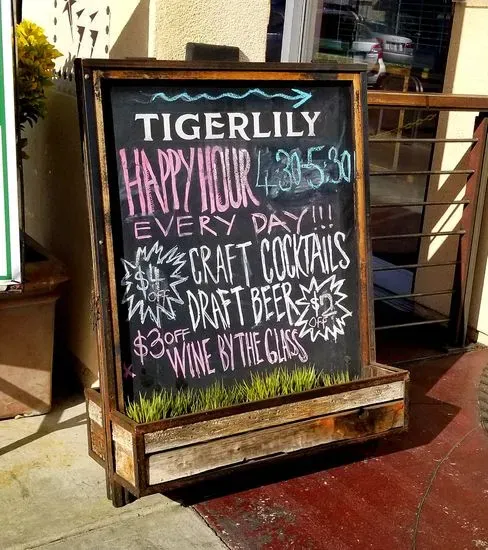 TIGERLILY
HAPPY HOUR 4:30-5:30
EVERY DAY!!!
$4 OFF CRAFT COCKTAILS
DRAFT BEER $2 OFF
$3 OFF WINE BY THE GLASS